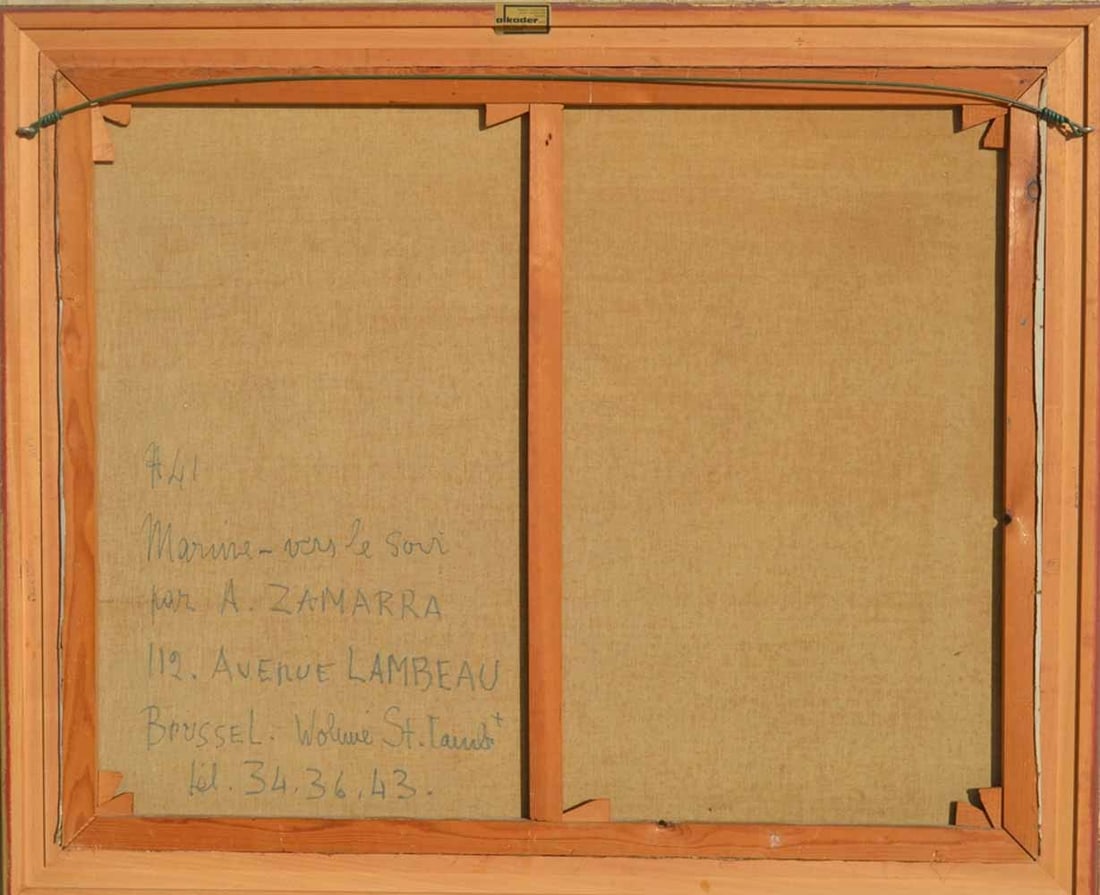 alkader
A41
Marine - vers le soir
par A. ZAMARRA
112. AVENUE LAMBEAU
BRUSSEL. Woluwe St. Lambt
tél. 34.36.43.